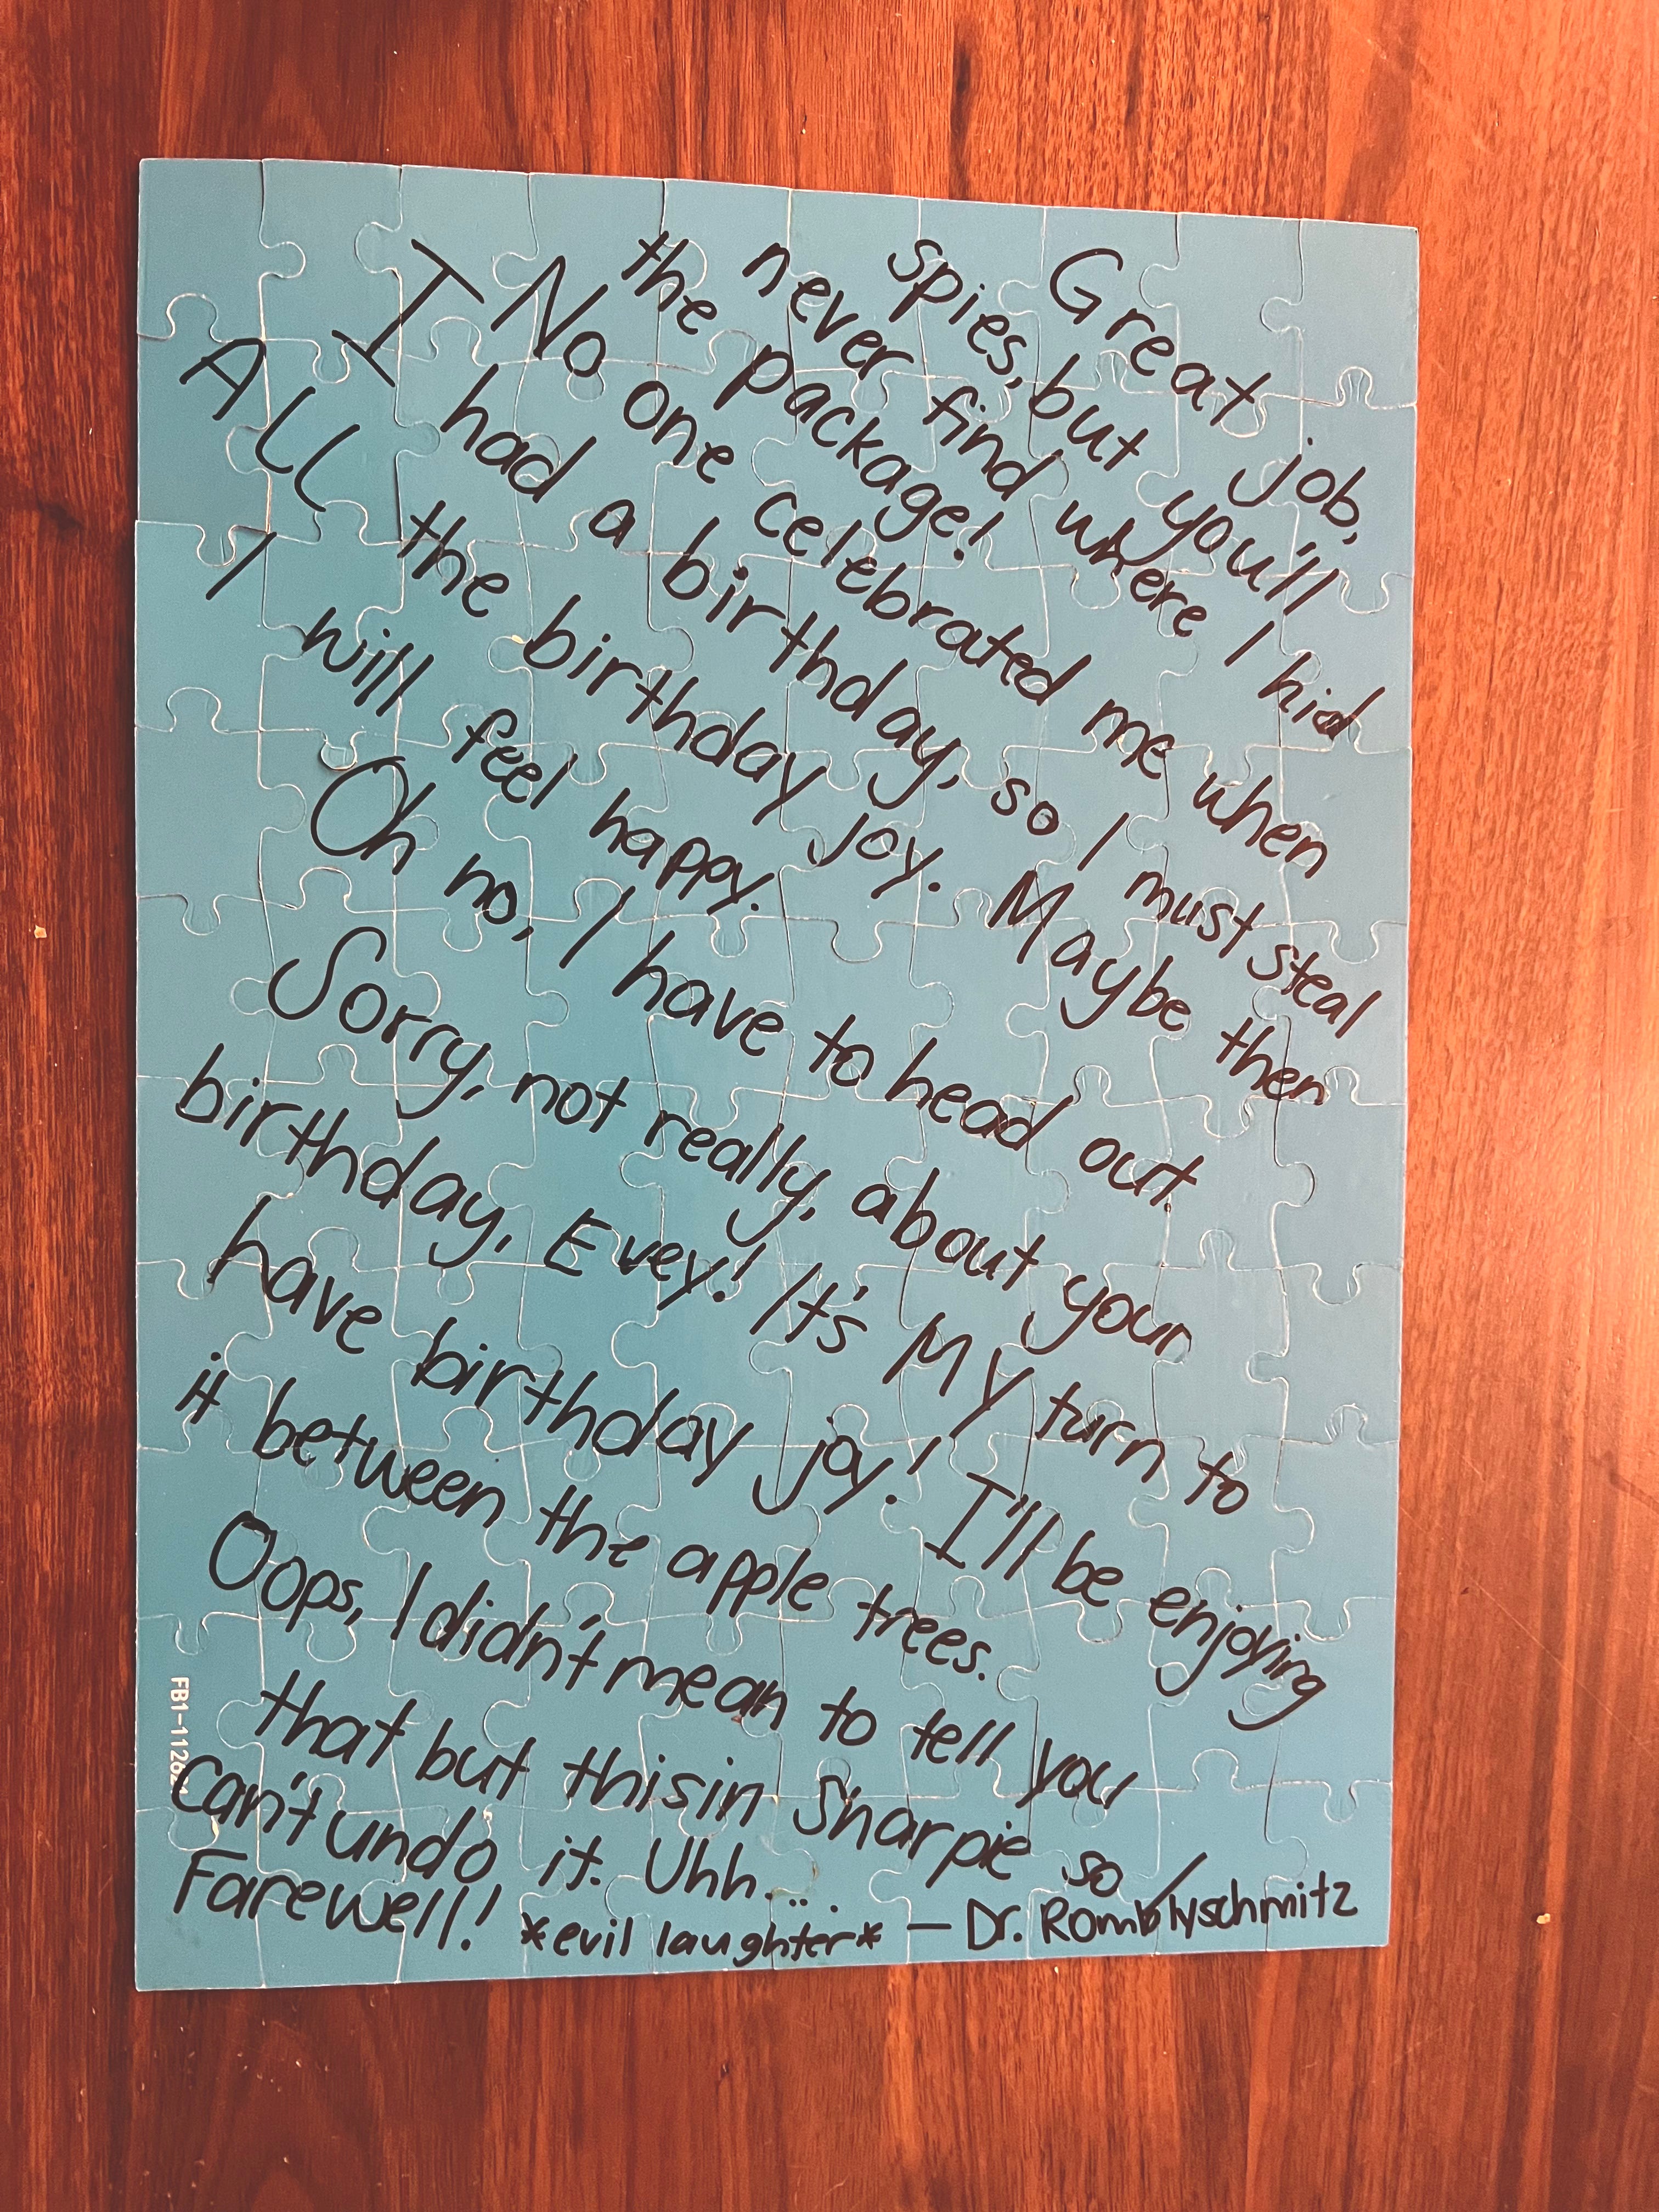 Great job,
spies, but you'll
never find where I hid
the package!
No one celebrated me when
I had a birthday, so I must steal
ALL the birthday joy. Maybe then
I will feel happy.
Oh no, I have to head out.
Sorry, not really, about your
birthday, Evey! It's MY turn to
have birthday joy! I'll be enjoying
it between the apple trees.
Oops, I didn't mean to tell you
that but this in Sharpie so I
can't undo it. Uhh...
Farewell! *evil laughter* — Dr. Romblyschmitz